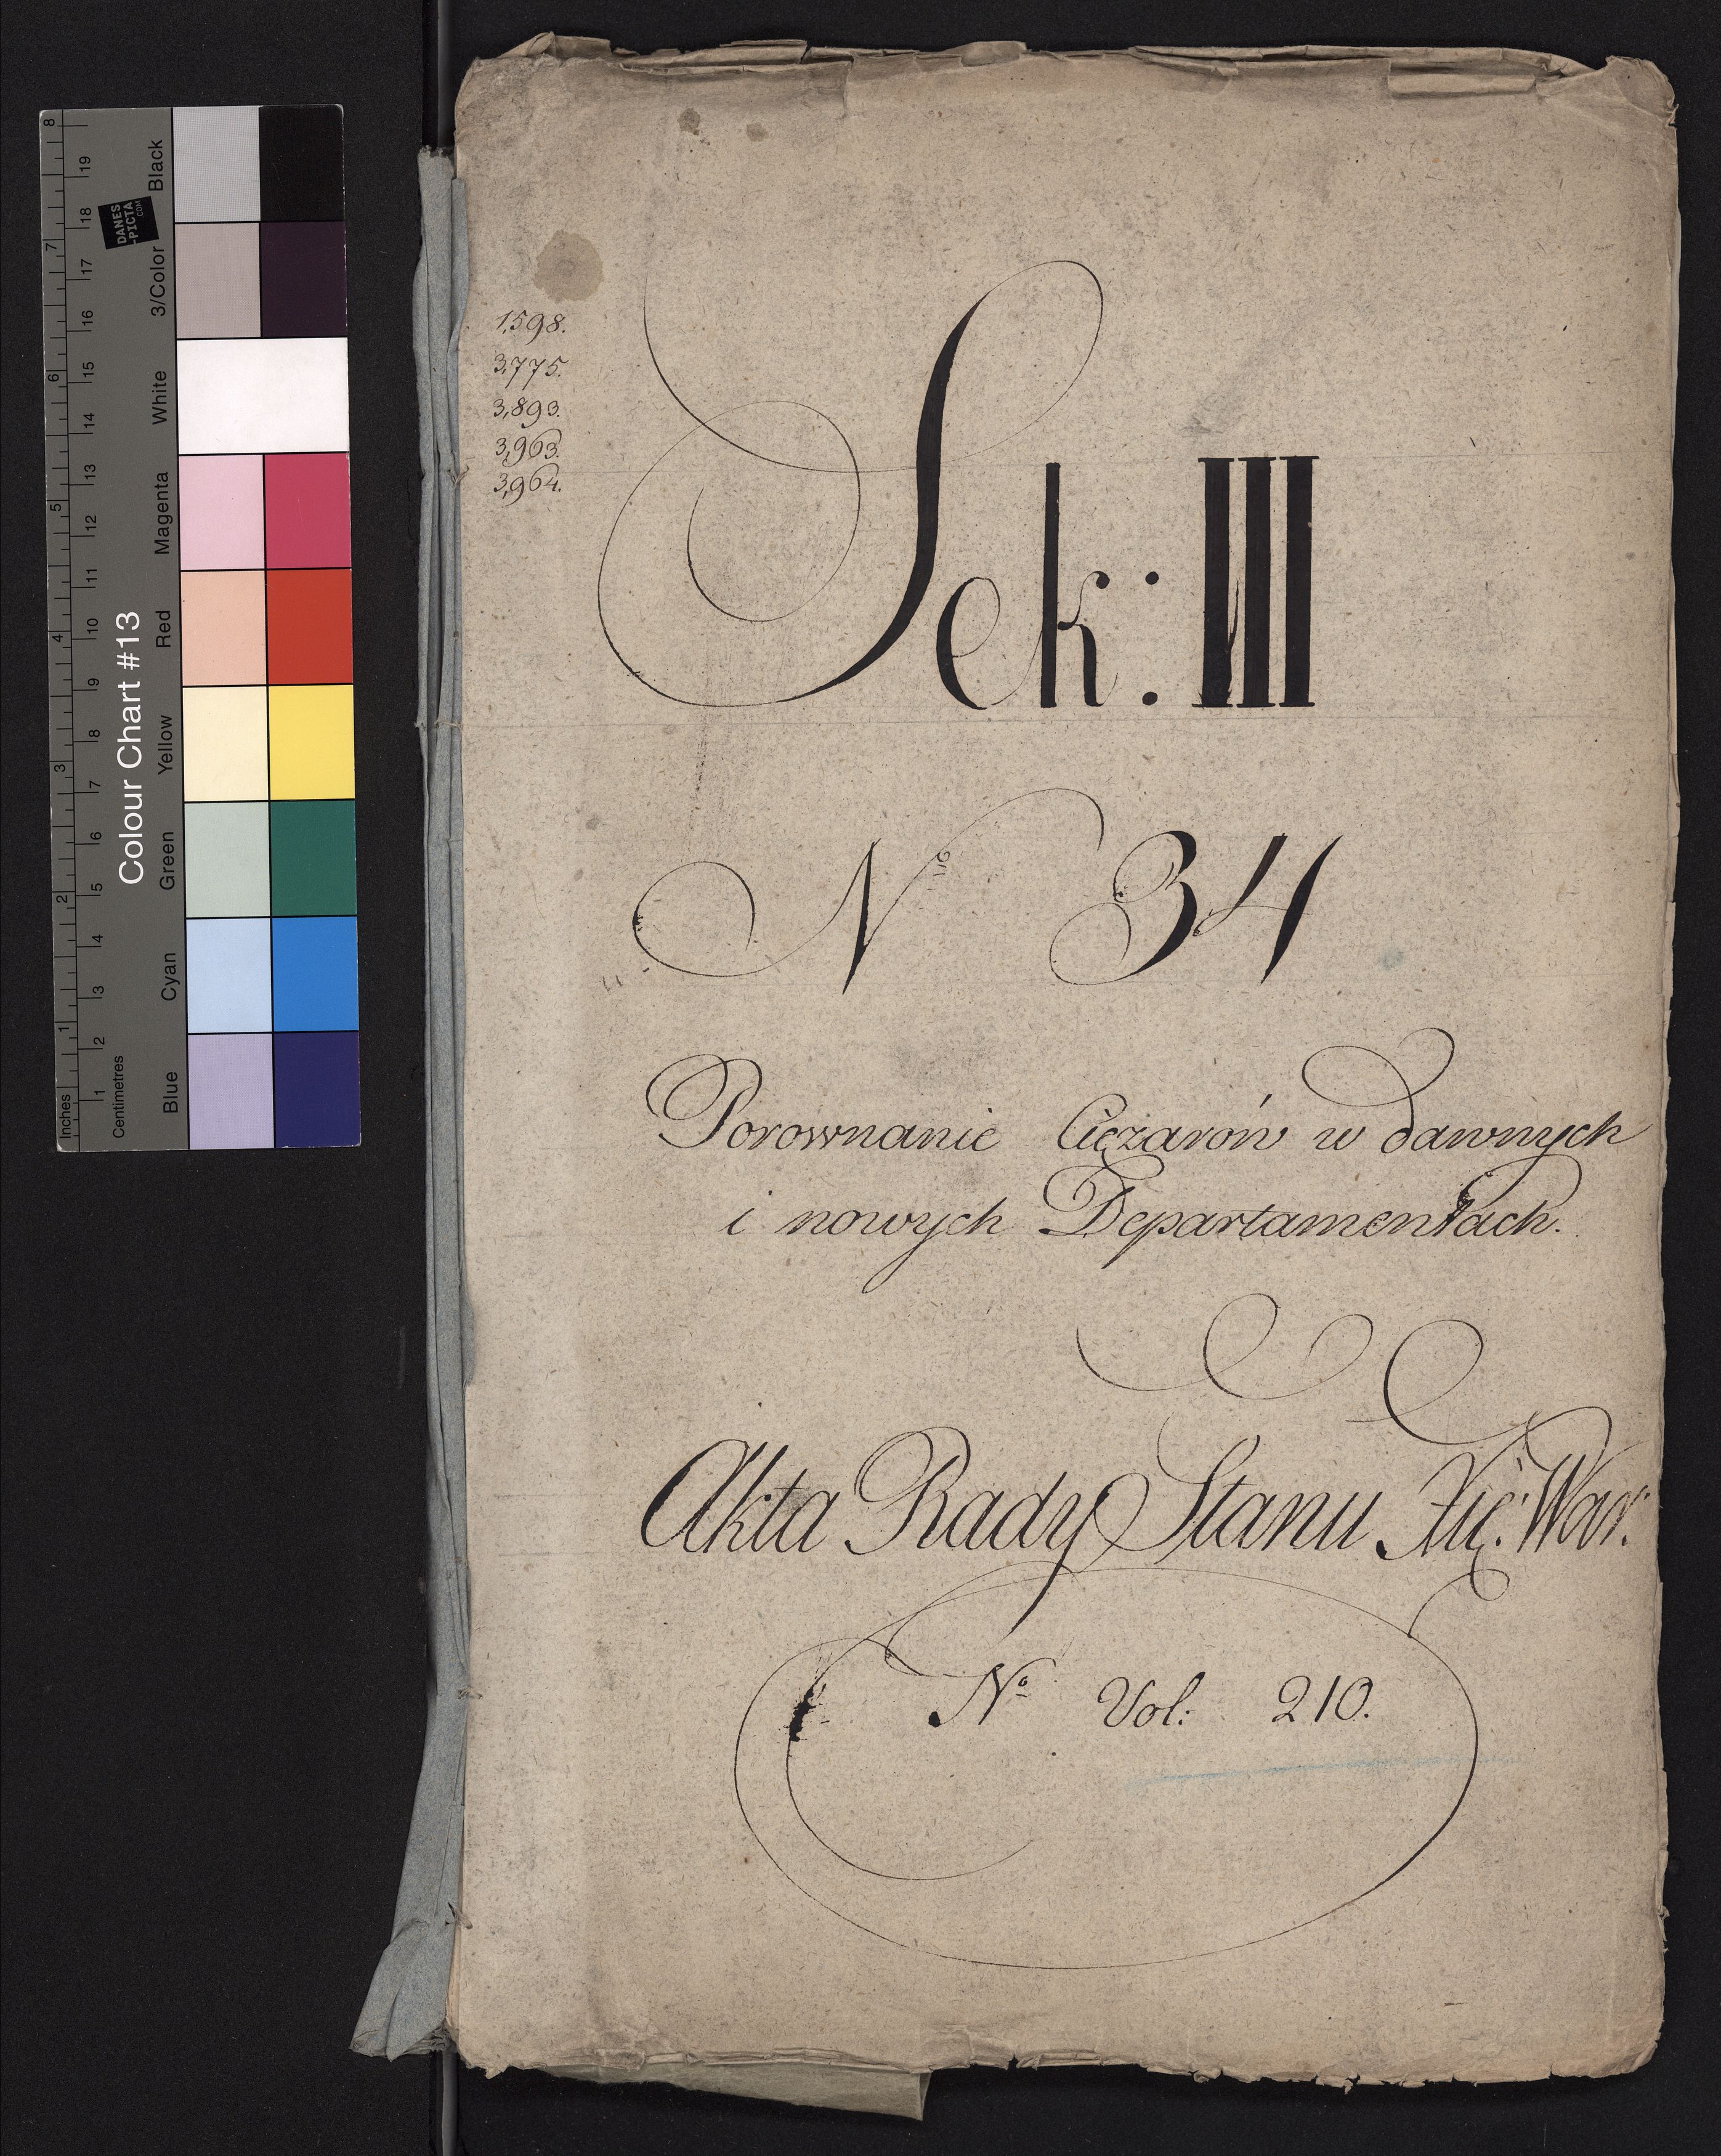 1,598.
3,775.
3,893.
3,963.
3,964.
Sek: III
No 34
Porownanie Ciężarów w dawnych
i nowych Departamentach.
Akta Rady Stanu Xię: War:
No Vol: 210.
Colour Chart #13
Blue Cyan Green Yellow Red Magenta White 3/Color Black
Inches 1 2 3 4 5 6 7 8
Centimetres 1 2 3 4 5 6 7 8 9 10 11 12 13 14 15 16 17 18 19
DANES
-PICTA
.COM